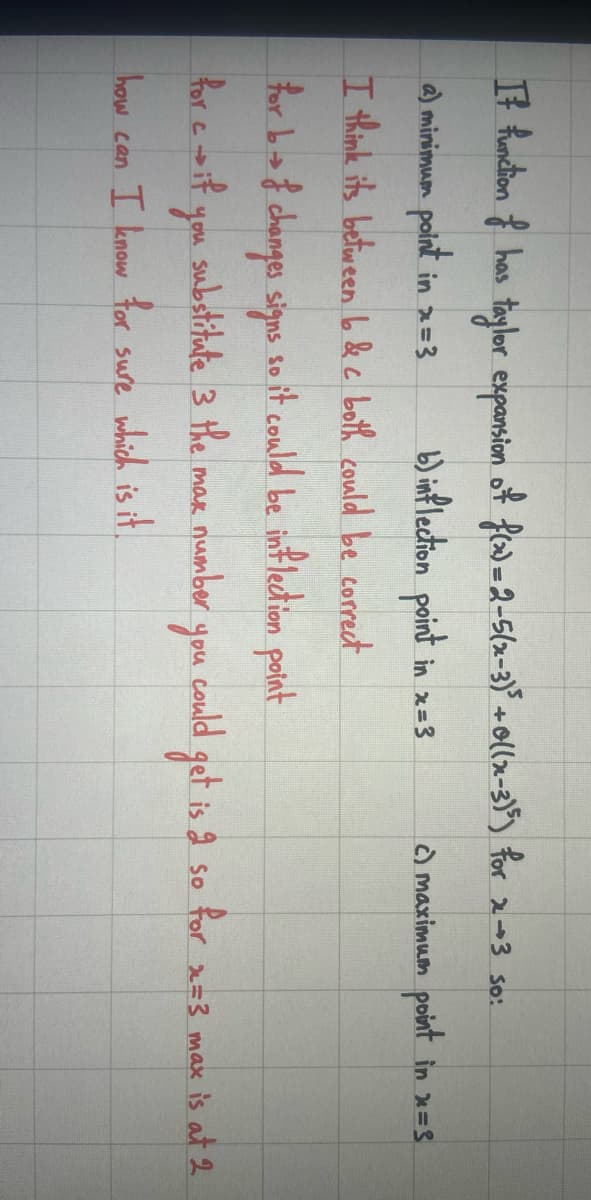 If function f has taylor expansion of f(x) = 2-5(x-3)⁵ + o((x-3)⁵) for x→3 so:
a) minimum point in x=3 b) inflection point in x=3 c) maximum point in x=3
I think its between b & c both could be correct
for b → f changes signs so it could be inflection point
for c → if you substitute 3 the max number you could get is 2 so for x=3 max is at 2
how can I know for sure which is it.